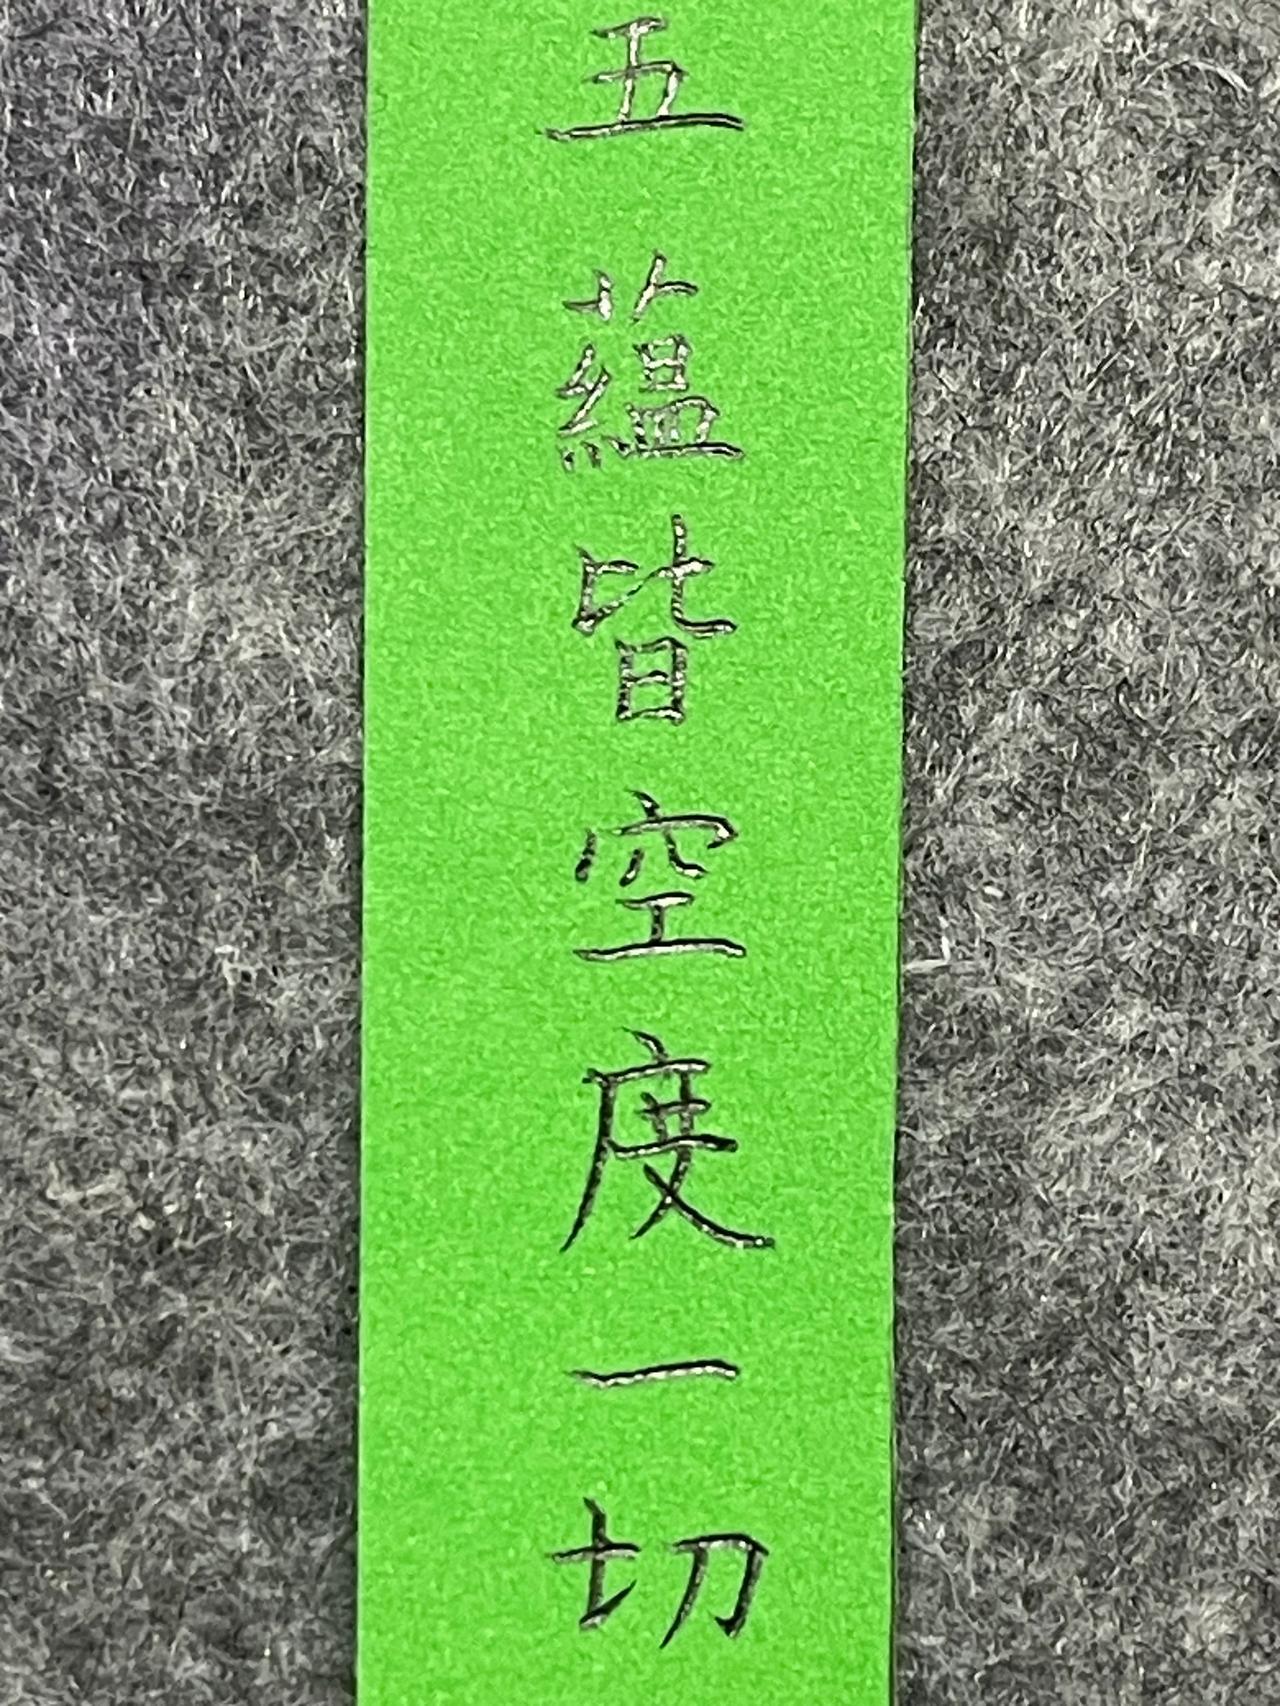 五蘊皆空度一切